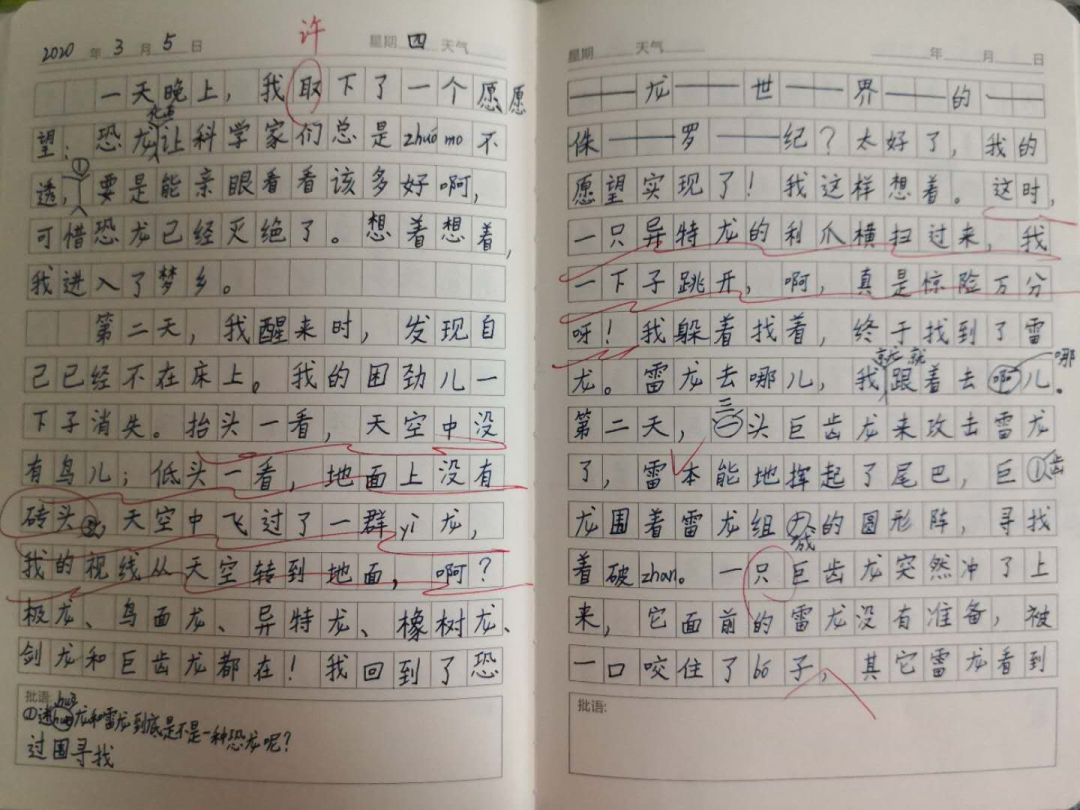 许
2020年3月5日 星期四 天气
一天晚上，我取下了一个愿愿
望：恐龙让科学家们总是zhuó mo不
透，要是能亲眼看看该多好啊，
可惜恐龙已经灭绝了。想着想着，
我进入了梦乡。
第二天，我醒来时，发现自
己已经不在床上。我的困劲儿一
下子消失。抬头一看，天空中没
有鸟儿；低头一看，地面上没有
砖头，天空中飞过了一群yì龙，
我的视线从天空转到地面，啊？
极龙、鸟面龙、异特龙、橡树龙、
剑龙和巨齿龙都在！我回到了恐
批语:
①迷huò龙和雷龙到底是不是一种恐龙呢？
过围寻找
星期 天气 年 月 日
——龙——世——界——的——
侏——罗——纪？太好了，我的
愿望实现了！我这样想着。这时，
一只异特龙的利爪横扫过来，我
一下子跳开，啊，真是惊险万分
呀！我躲着找着，终于找到了雷
龙。雷龙去哪儿，我就跟着去哪儿。
第二天，三头巨齿龙来攻击雷龙
了，雷本能地挥起了尾巴，巨齿
龙围着雷龙组成的圆形阵，寻找
着破zhàn。一只巨齿龙突然冲了上
来，它面前的雷龙没有准备，被
一口咬住了bó子，其它雷龙看到
批语: